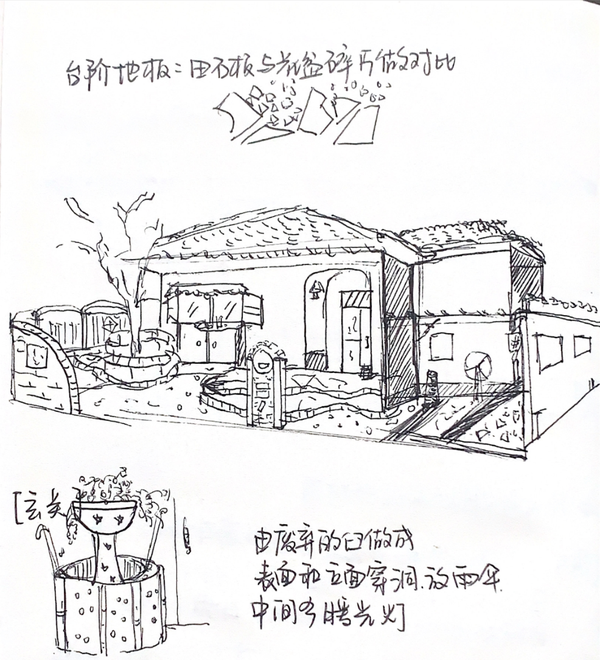 台阶地板：由石板与花盆碎片做对比
[玄关
由废弃的臼做成
表面和立面穿洞.放雨伞
中间有暖光灯